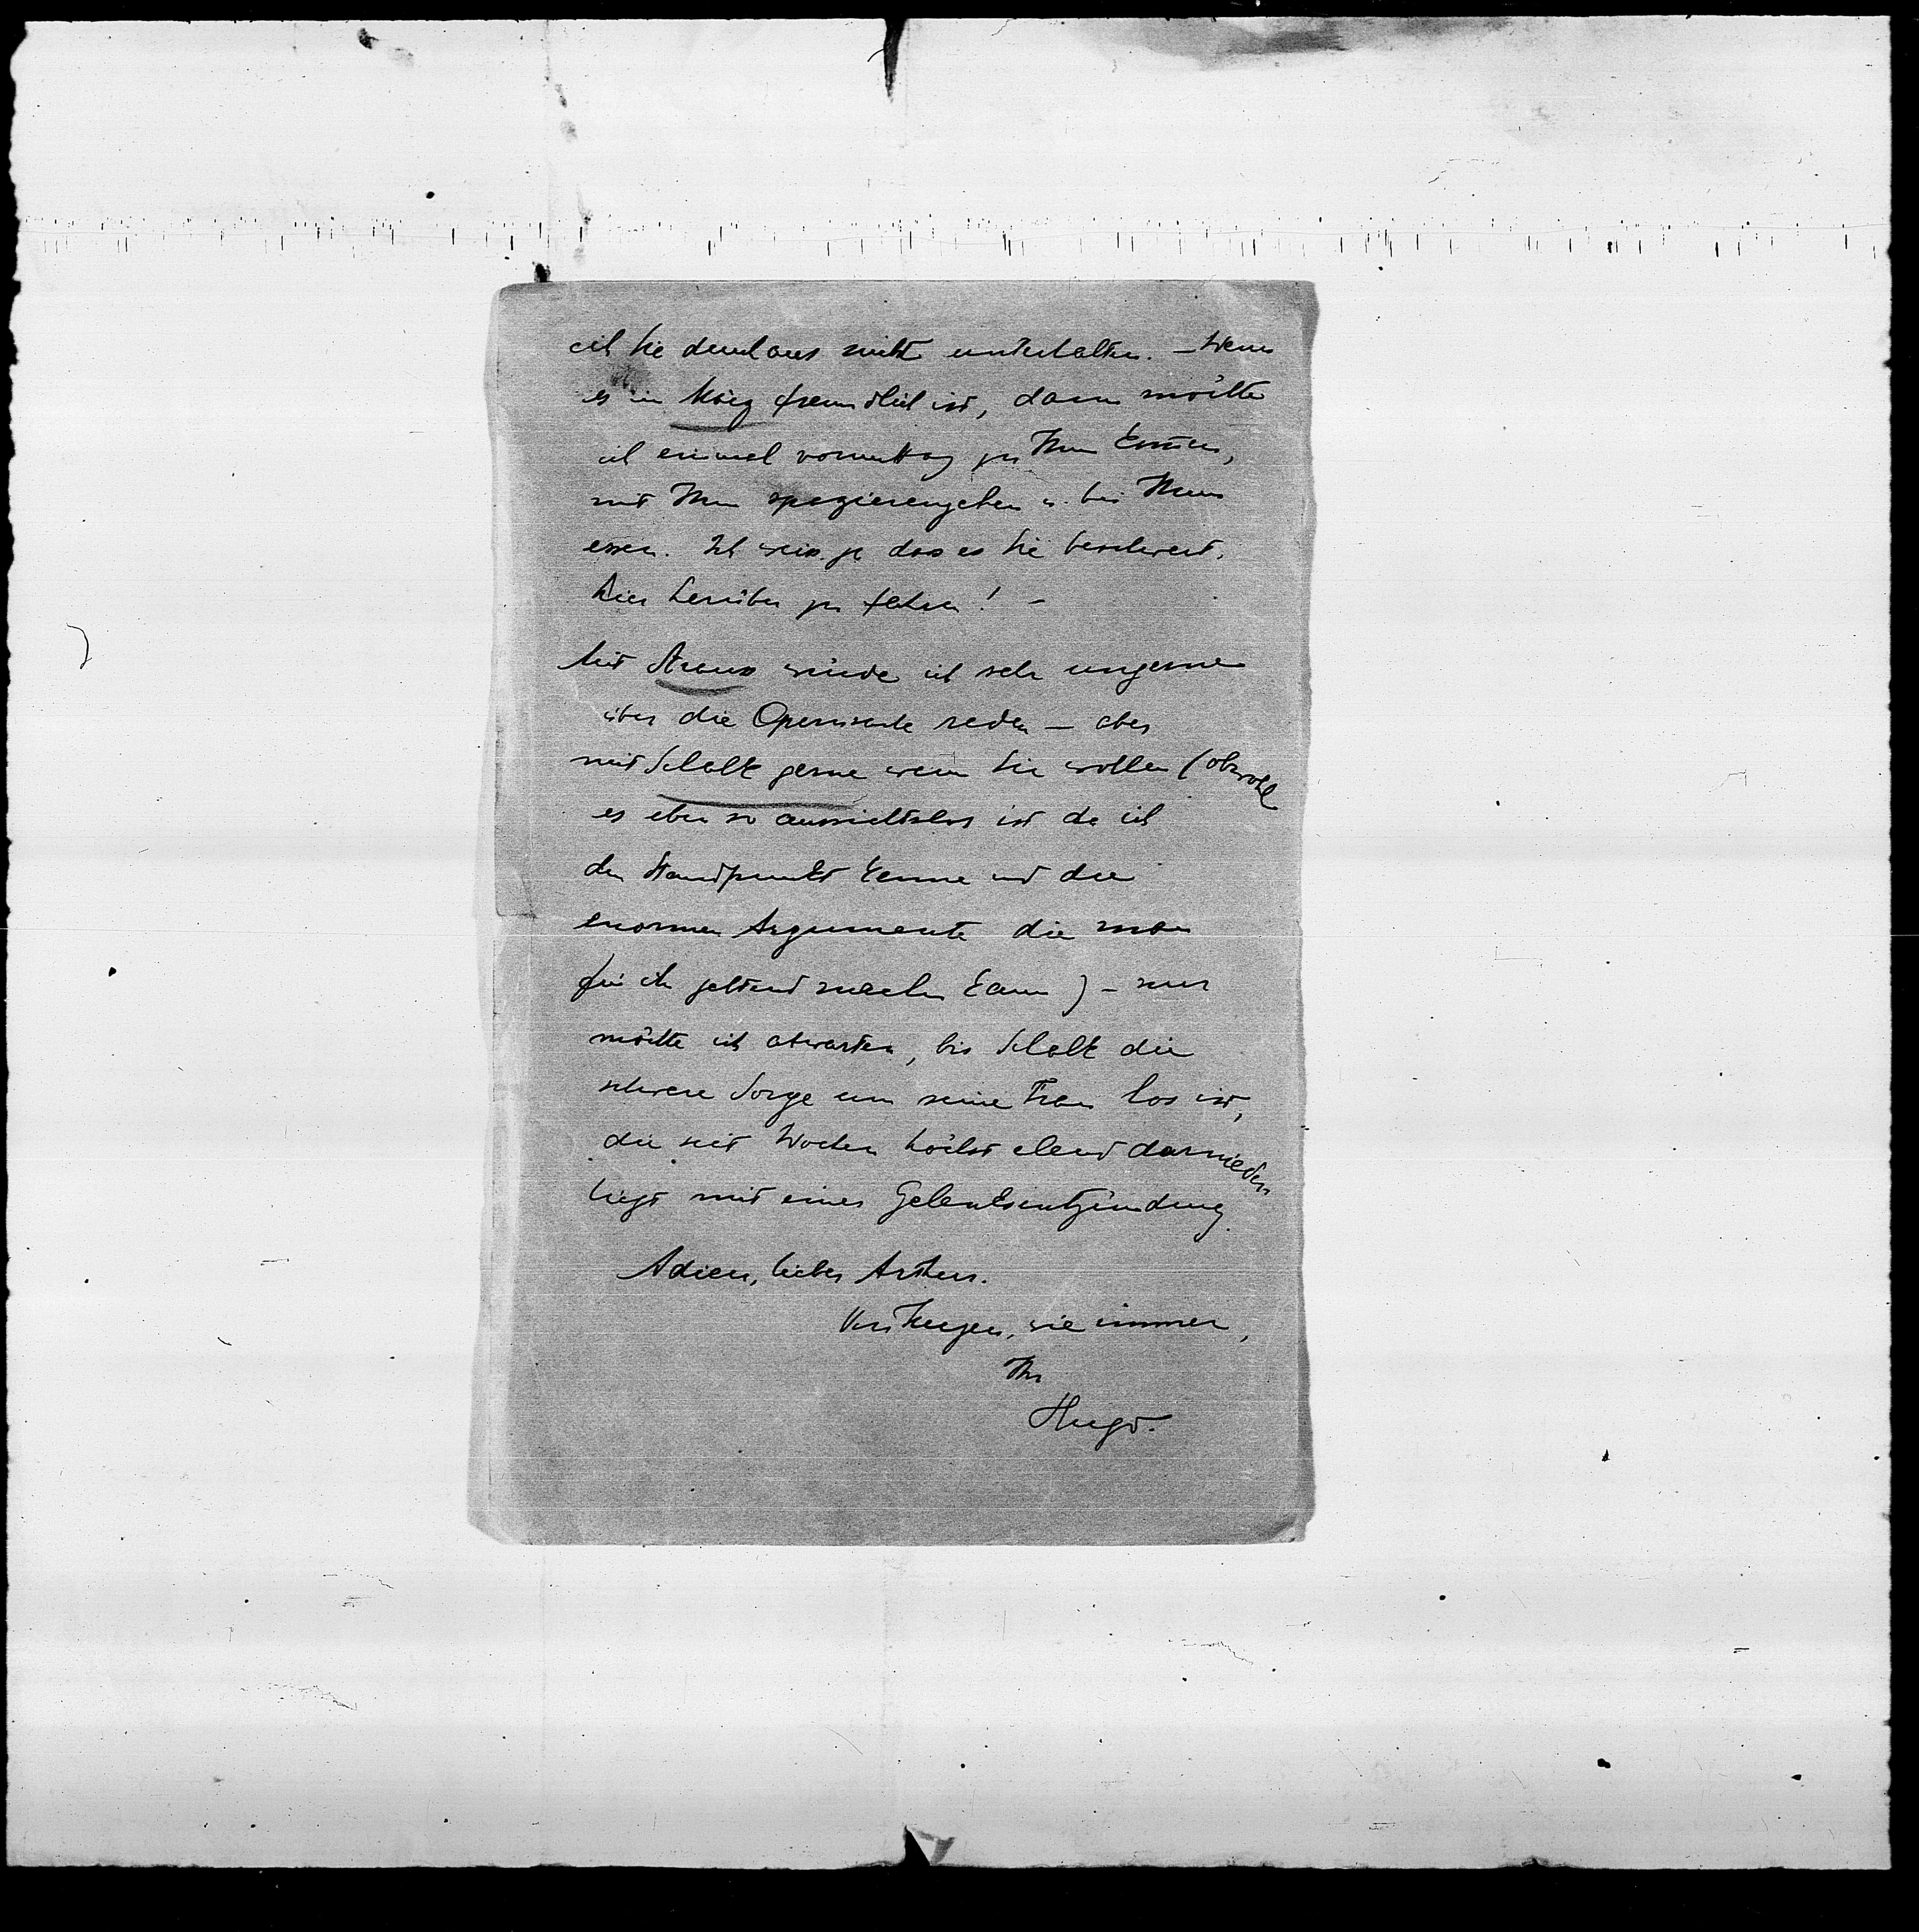 ich Sie durchaus nicht unterhalten. – Wenn
es im März freundlich ist, dann möchte
ich einmal vormittag zu Ihnen komen,
mit Ihnen spazierengehen u. bei Ihnen
essen. Ich weiss ja dass es Sie beschwert,
hier herüber zu fahren! –
Mit Strauss würde ich sehr ungerne
über die Opernsache reden – aber
mit Schalk gerne wenn Sie wollen (obwohl
es eben so aussichtslos ist da ich
den Standpunkt kenne und die
enormen Argumente die man
für ihn geltend machen kann) – nur
möchte ich abwarten, bis Schalk die
schwere Sorge um seine Frau los ist,
die seit Wochen höchst elend darnieder
liegt mit einer Gelenksentzündung.
Adieu, lieber Arthur.
Von Herzen, wie immer,
Ihr
Hugo.